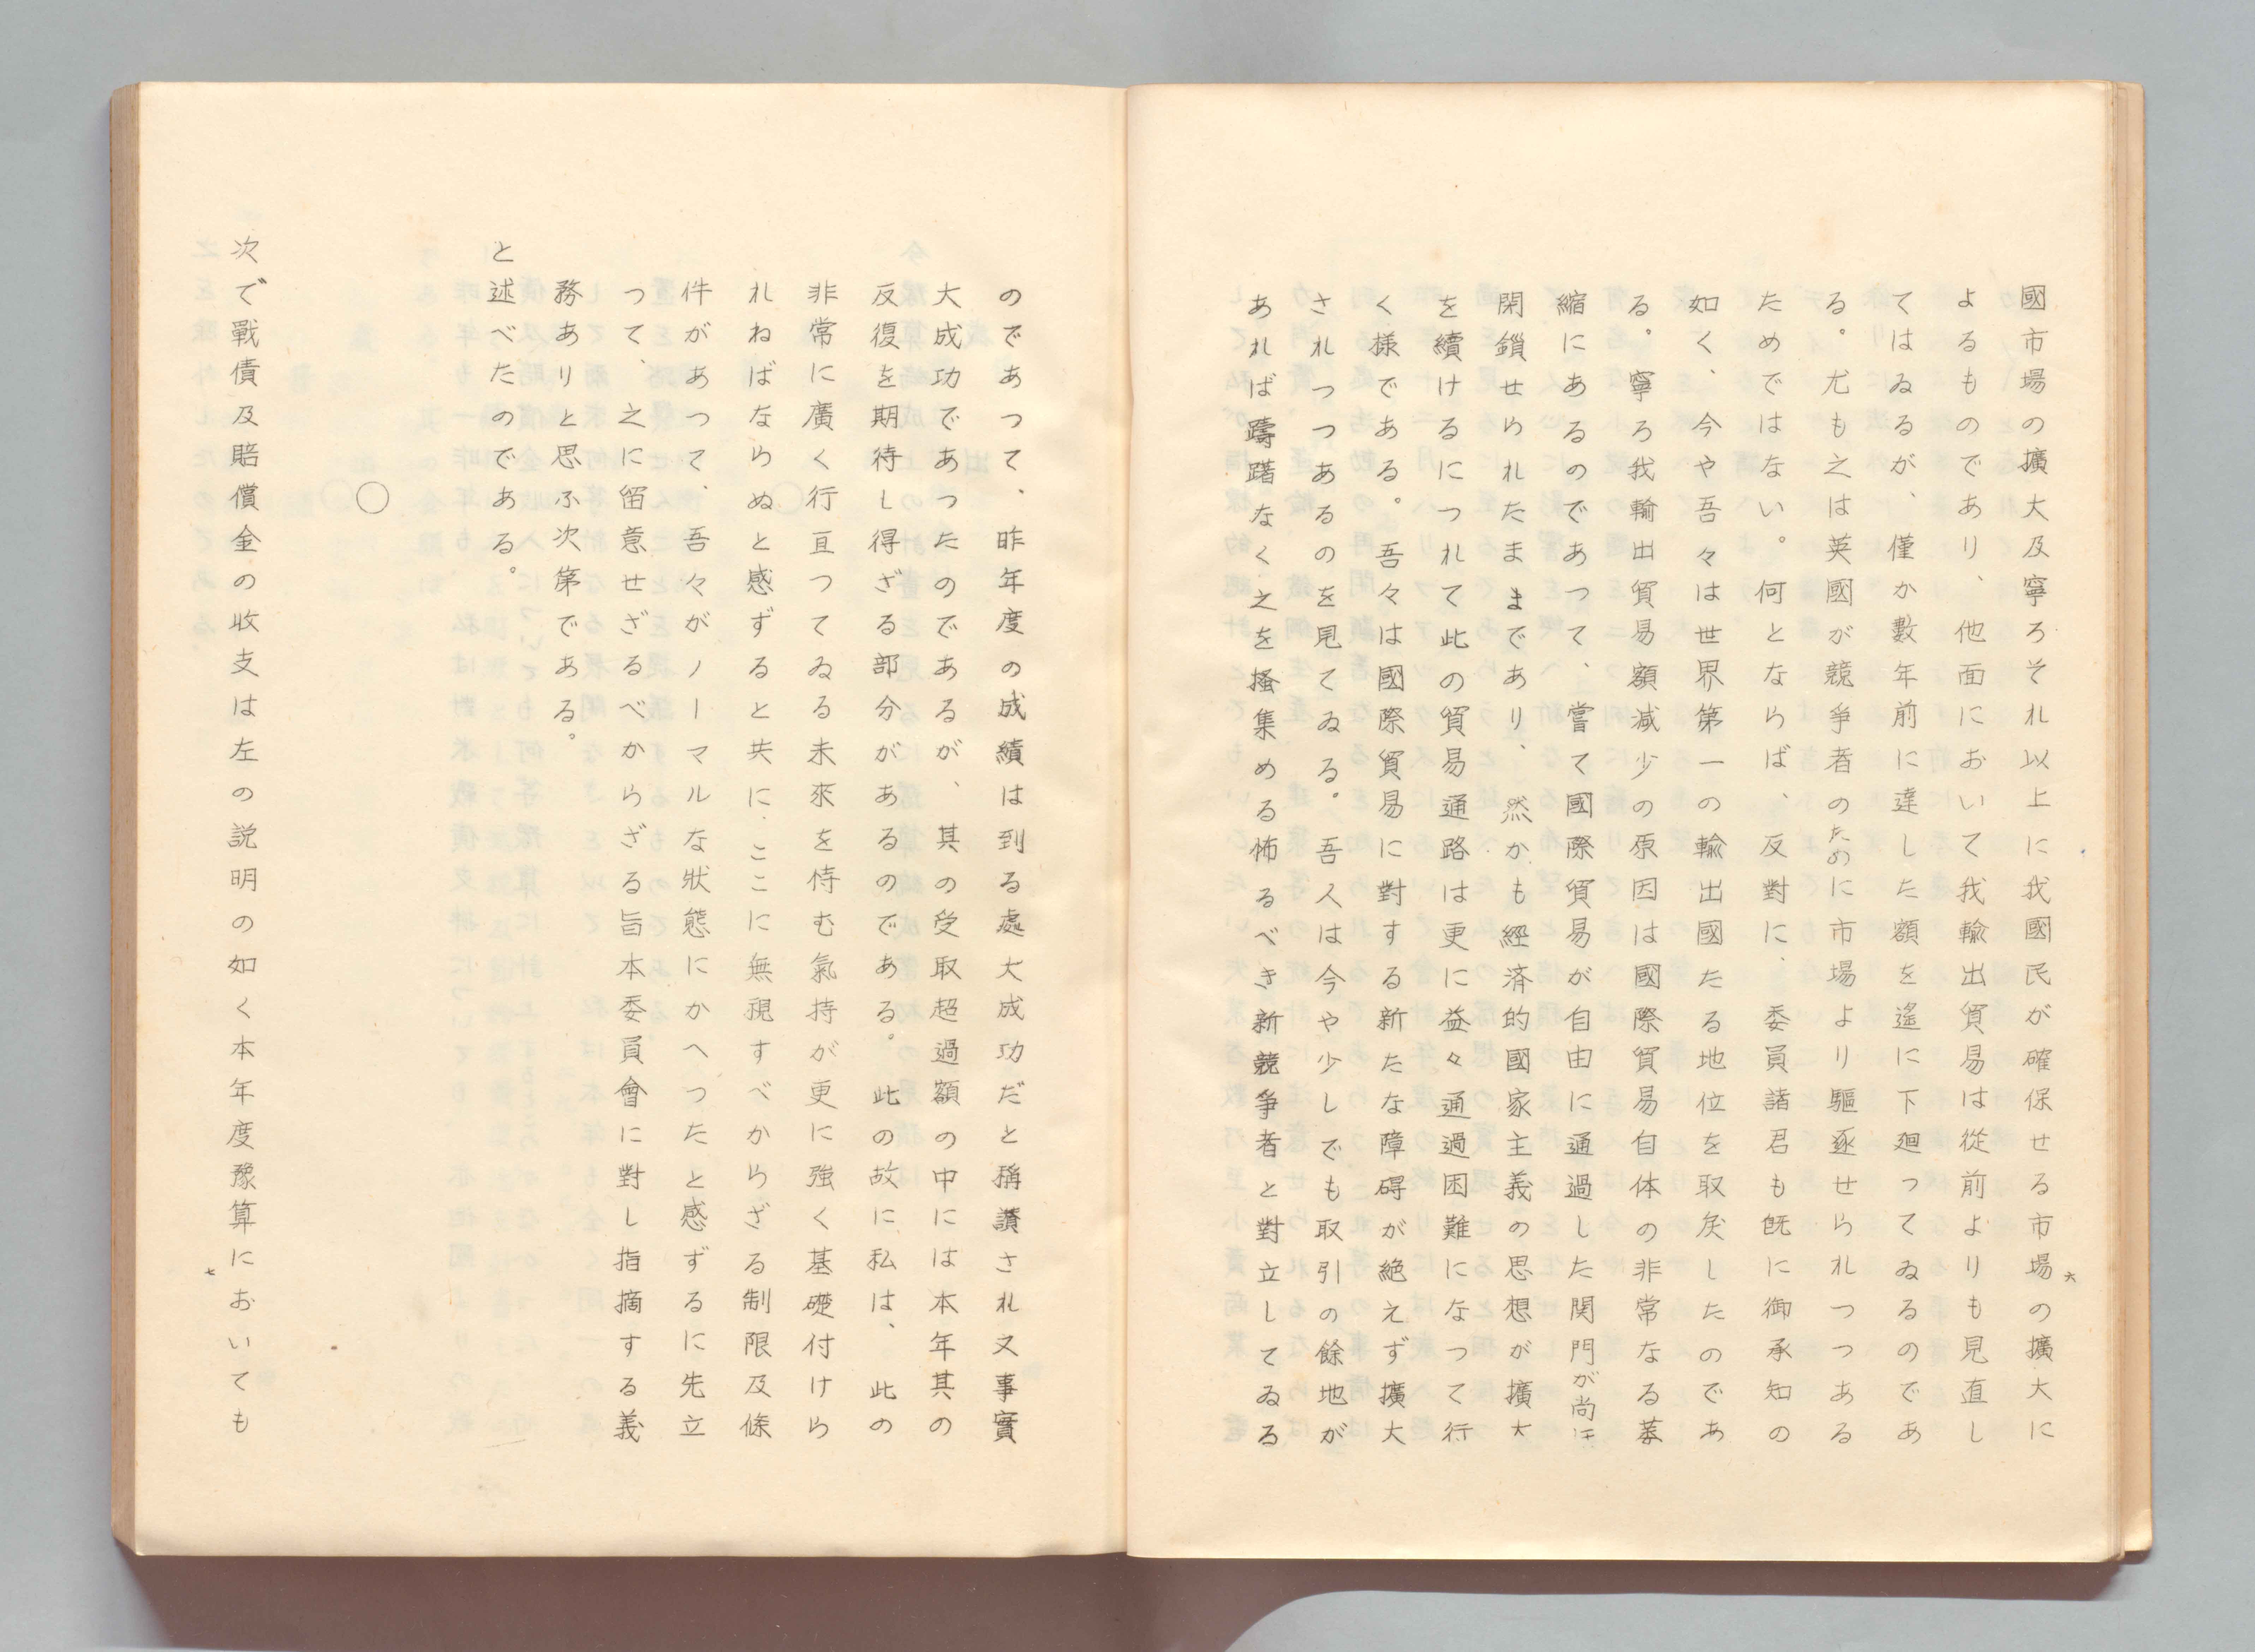 國市場の擴大及寧ろそれ以上に我國民が確保せる市場の擴大に
よるものであり、他面において我輸出貿易は從前よりも見直し
てはゐるが、僅か數年前に達した額を遙に下廻ってゐるのであ
る。尤も之は英國が競爭者のために市場より驅逐せられつつある
ためではない。何とならば、反對に、委員諸君も既に御承知の
如く、今や吾々は世界第一の輸出國たる地位を取戻したのであ
る。寧ろ我輸出貿易額減少の原因は國際貿易自体の非常なる萎
縮にあるのであつて、嘗て國際貿易が自由に通過した関門が尚ほ
閉鎖せられたままであり、然かも經済的國家主義の思想が擴大
を續けるにつれて此の貿易通路は更に益々通過困難になつて行
く様である。吾々は國際貿易に對する新たな障碍が絶えず擴大
されつつあるのを見てゐる。吾人は今や少しでも取引の餘地が
あれば躊躇なく之を掻集める怖るべき新競爭者と對立してゐる
六
のであつて、昨年度の成績は到る處大成功だと稱讃され又事實
大成功であつたのであるが、其の受取超過額の中には本年其の
反復を期待し得ざる部分があるのである。此の故に私は、此の
非常に廣く行亘つてゐる未來を恃む氣持が更に強く基礎付けら
れねばならぬと感ずると共に、ここに無視すべからざる制限及條
件があつて、吾々がノーマルな狀態にかへつたと感ずるに先立
つて、之に留意せざるべからざる旨本委員會に對し指摘する義
務ありと思ふ次第である。
と述べたのである。
○
次で戰債及賠償金の收支は左の説明の如く本年度豫算においても
七